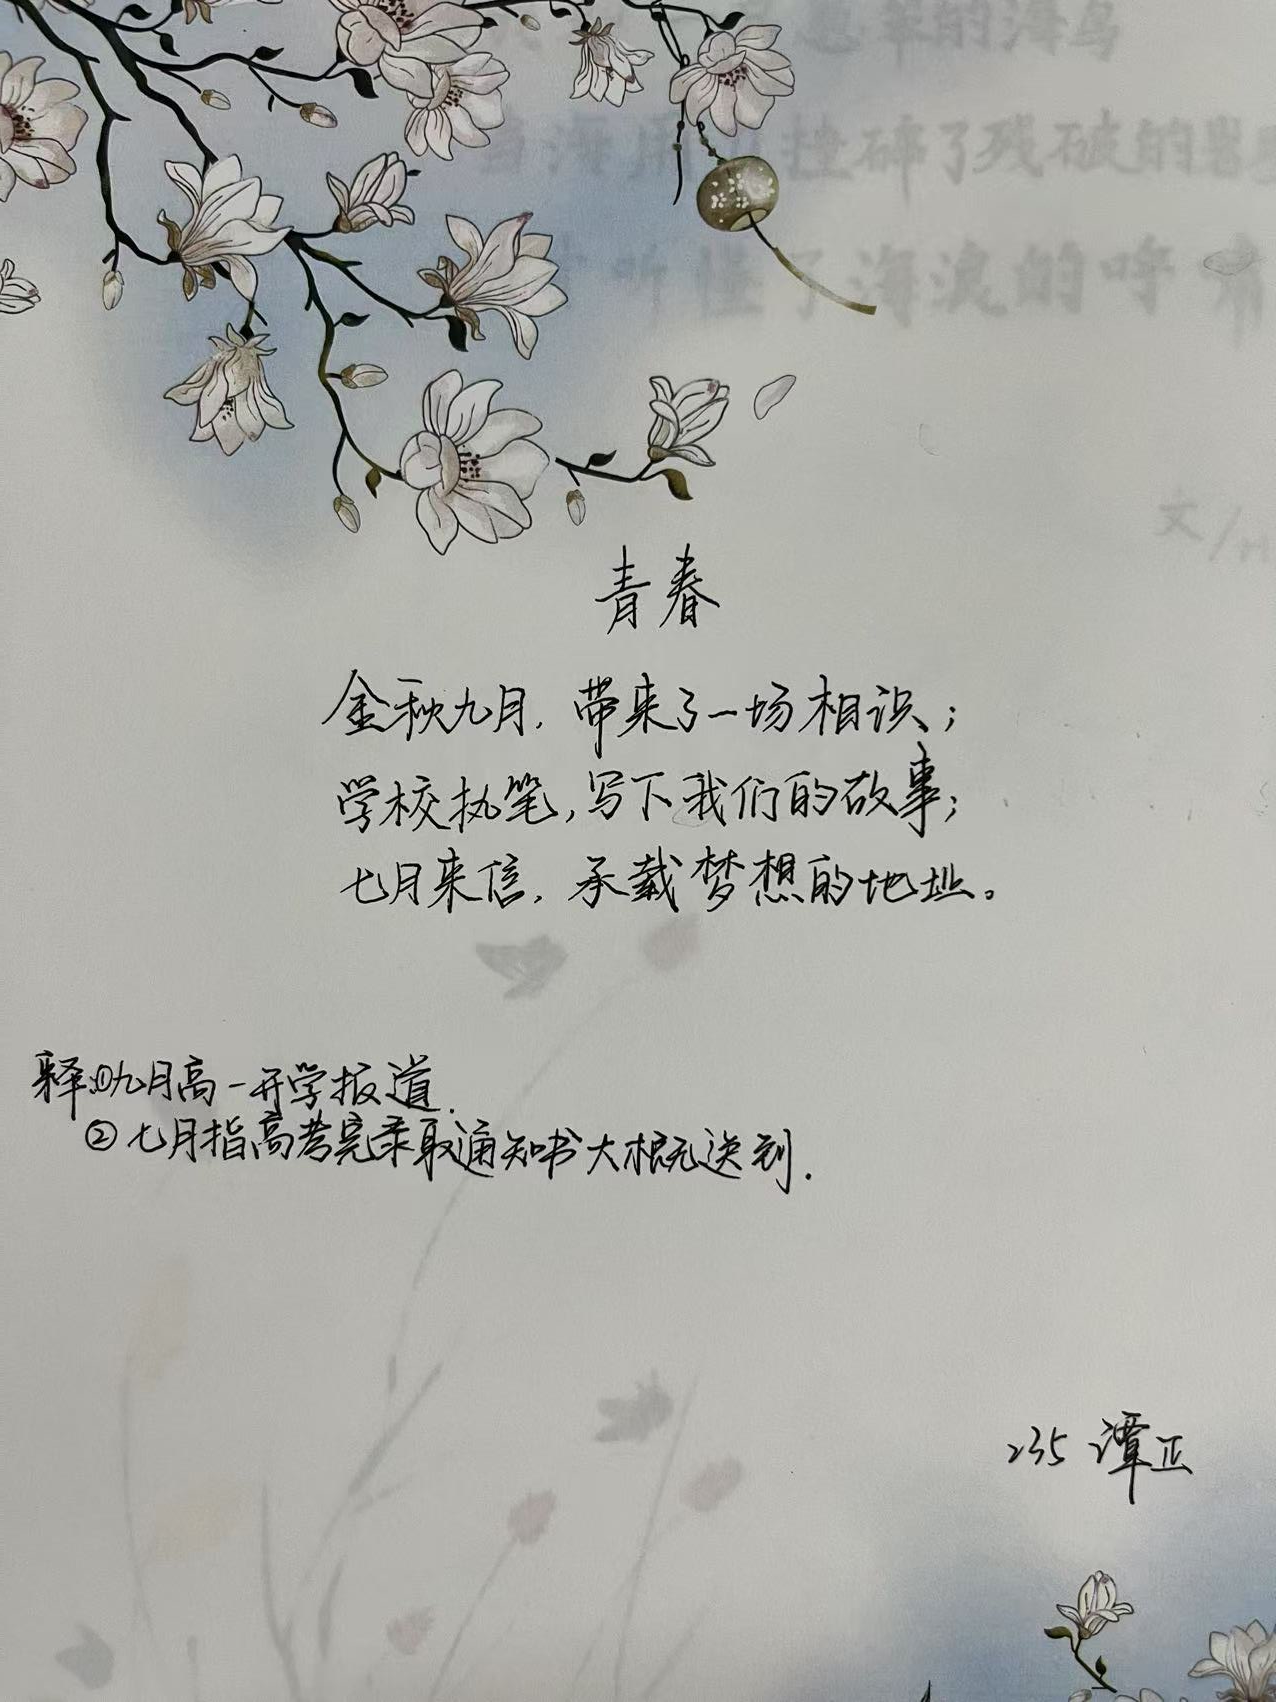 的海鸟
碎了残破的
听懂了海浪的呼
文/
青春
金秋九月，带来了一场相识；
学校执笔，写下我们的故事；
七月来信，承载梦想的地址。
释：①九月高一开学报道.
②七月指高考完录取通知书大概送到.
235 谭正